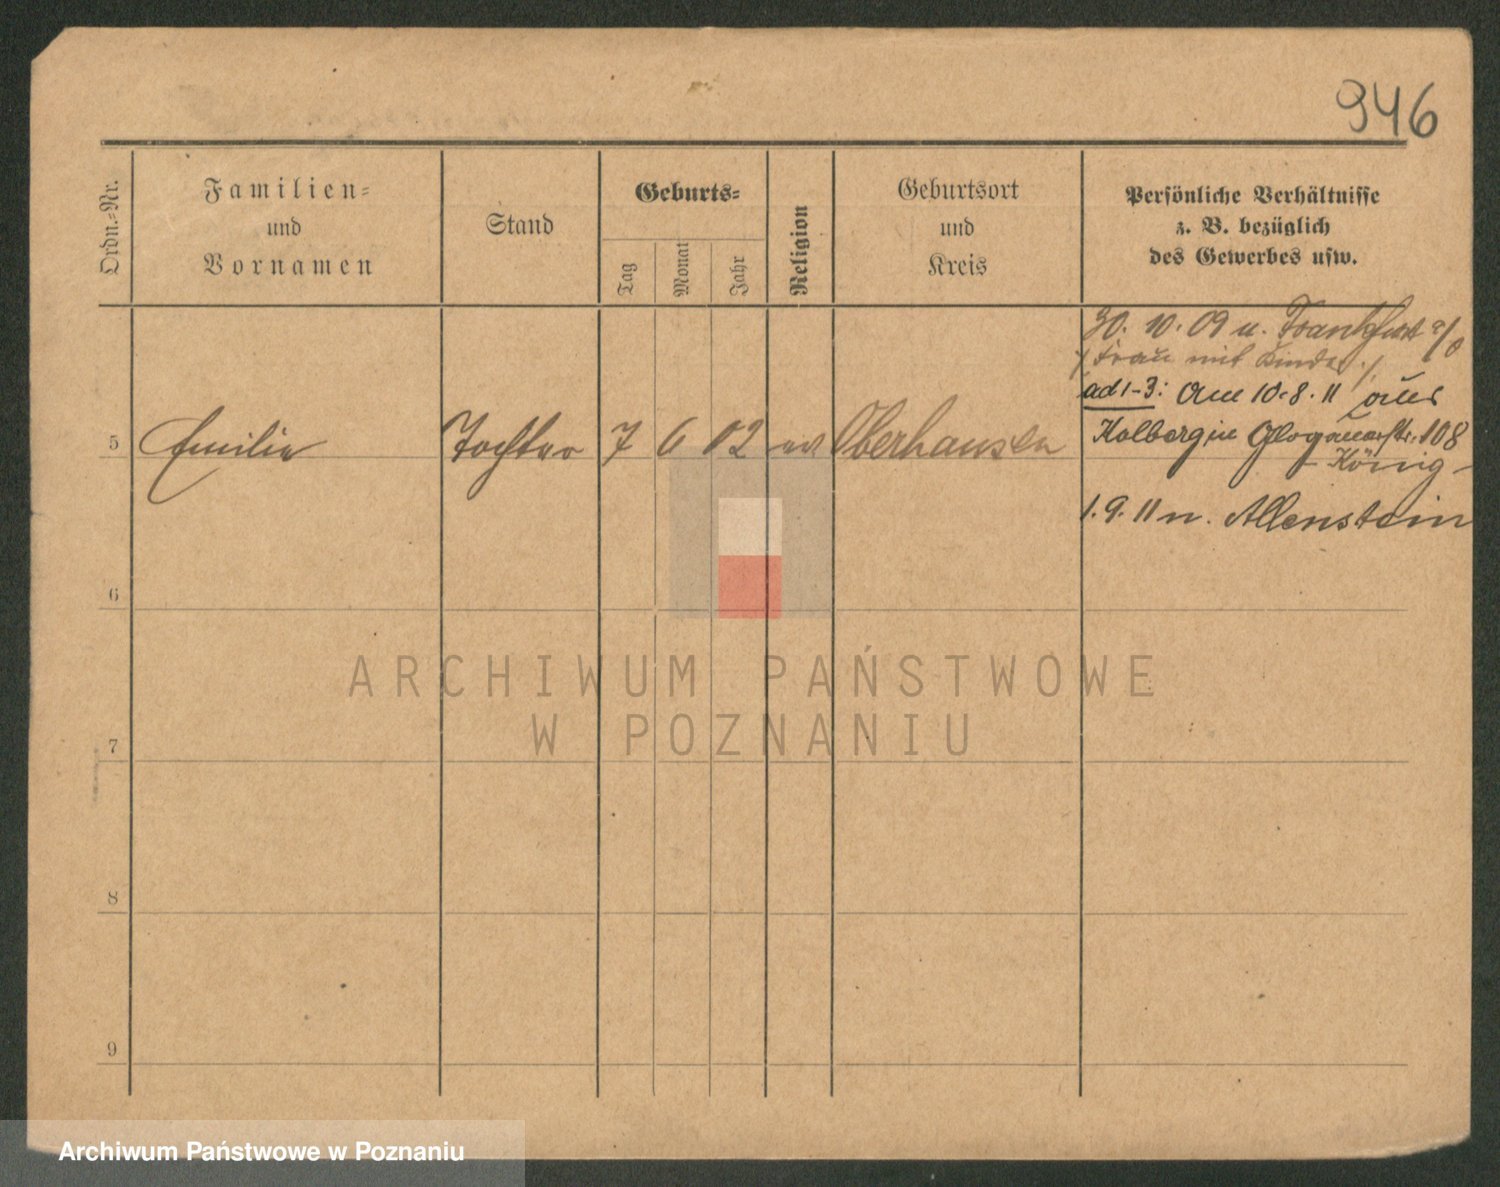 946
Ordn.-Nr.
Familien-
und
Vornamen
Stand
Geburts-
Tag
Monat
Jahr
Religion
Geburtsort
und
Kreis
Persönliche Verhältnisse
z. B. bezüglich
des Gewerbes usw.
30. 10. 09 n. Frankfurt a/O
/ Frau mit Kinder. /
ad 1-3: Am 10.8.11 aus
5 Emilie Tochter 7 6 02 ev Oberhausen
Kolberg in Glogauerstr. 108
- König -
1.9.11 n. Allenstein
6
7
8
9
ARCHIWUM PAŃSTWOWE
W POZNANIU
Archiwum Państwowe w Poznaniu